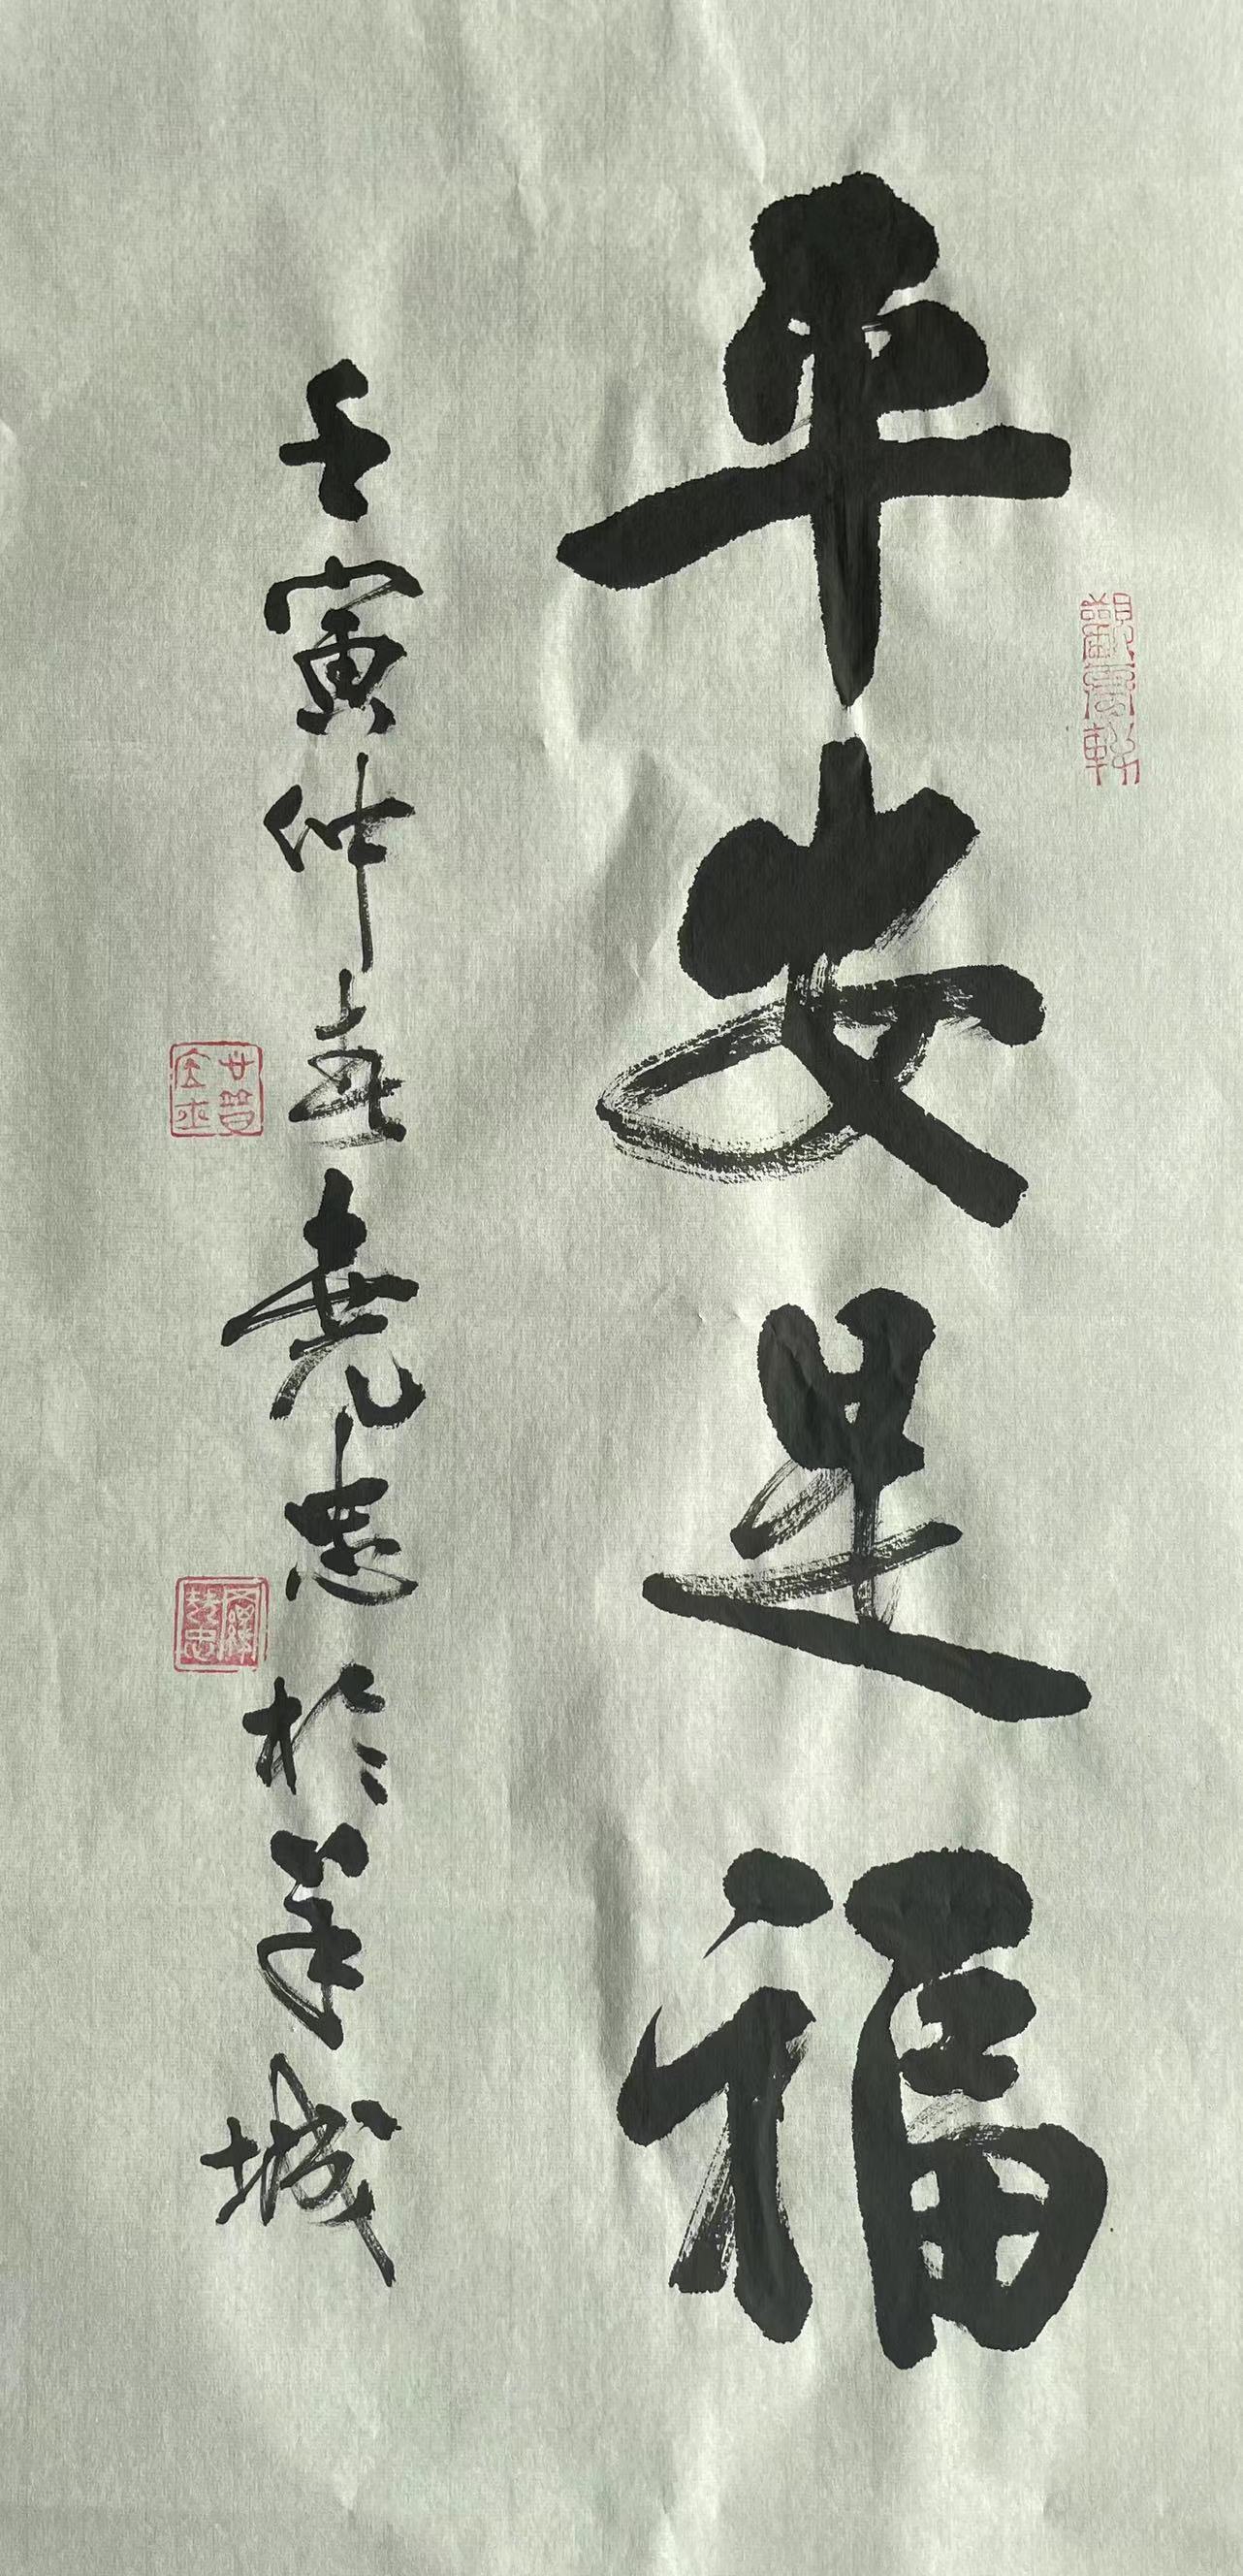 平安足福
壬寅仲春堯忠於羊城